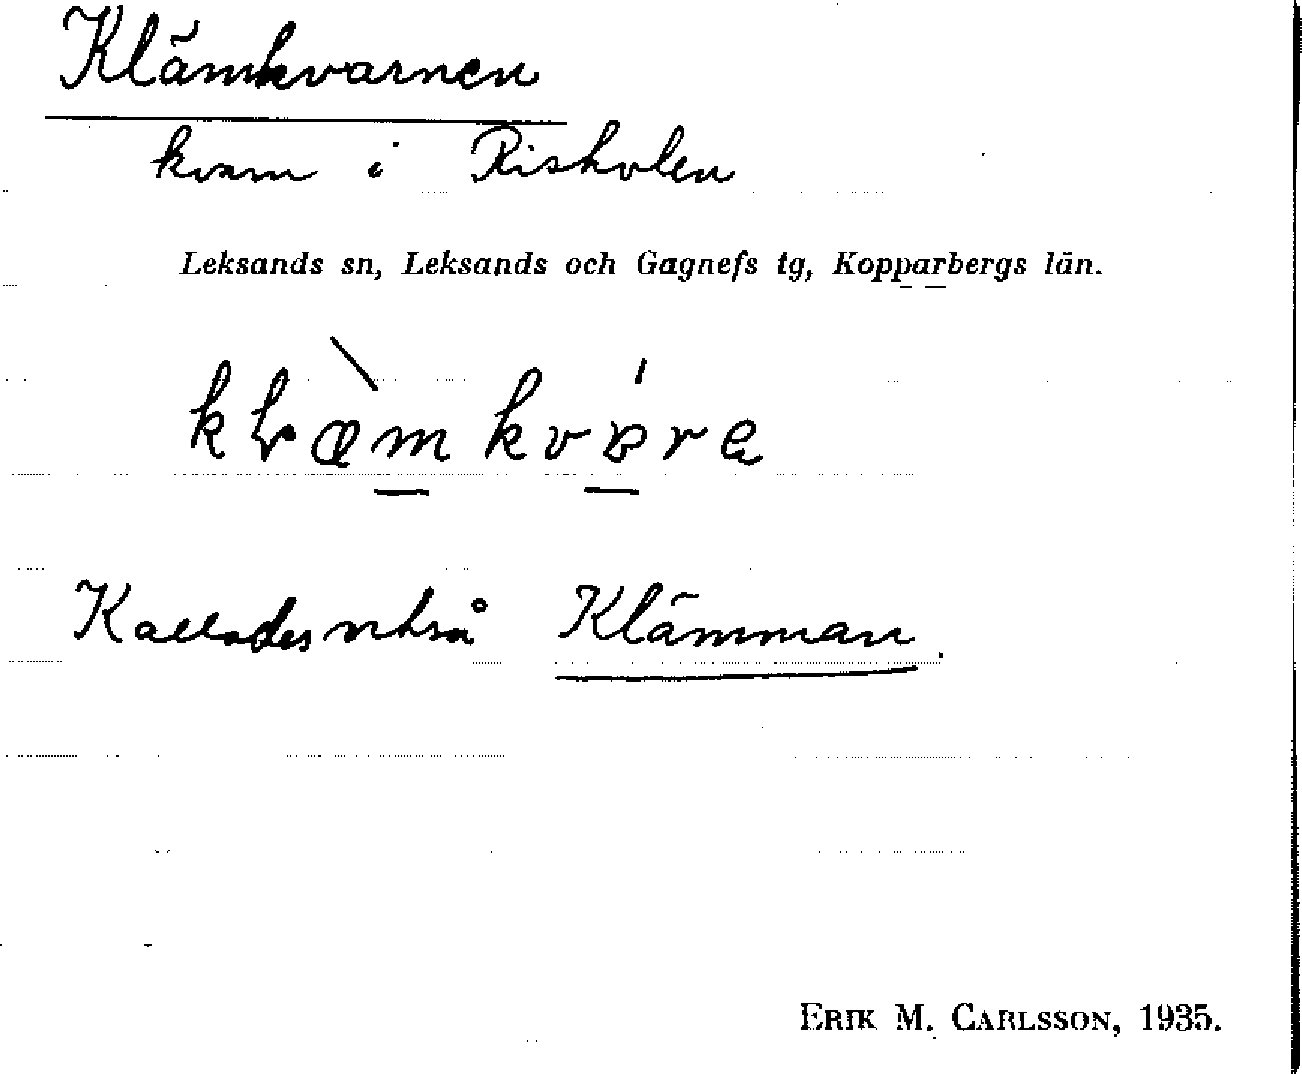 Klämkvarnen
kvarn i Risholen
Leksands sn, Leksands och Gagnefs tg, Kopparbergs län.
Kallades också Klämman.
ERIK M. CARLSSON, 1935.